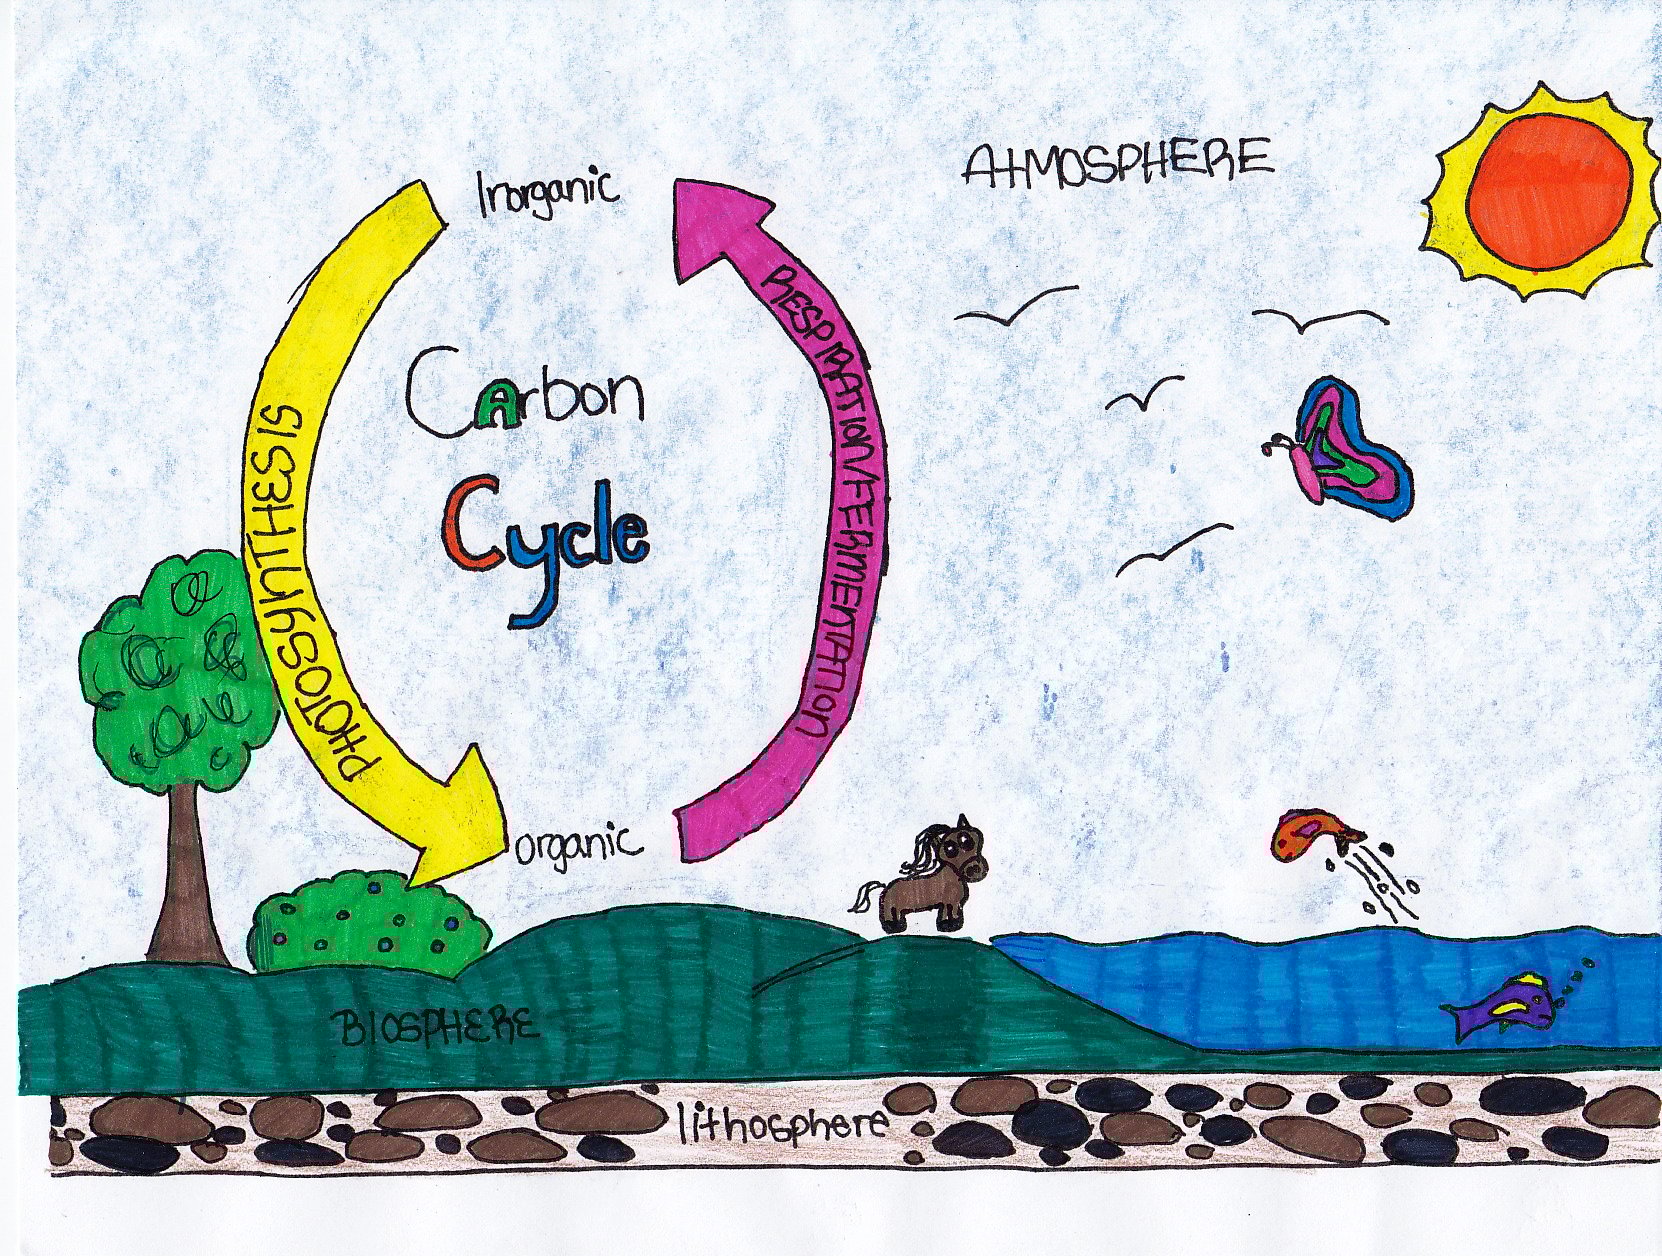 AtMOSPHERE
Inorganic
CArbon
Cycle
PHOTOSYNTHESIS
RESPIRATION/FERMENTATION
organic
BIOSPHERE
lithosphere